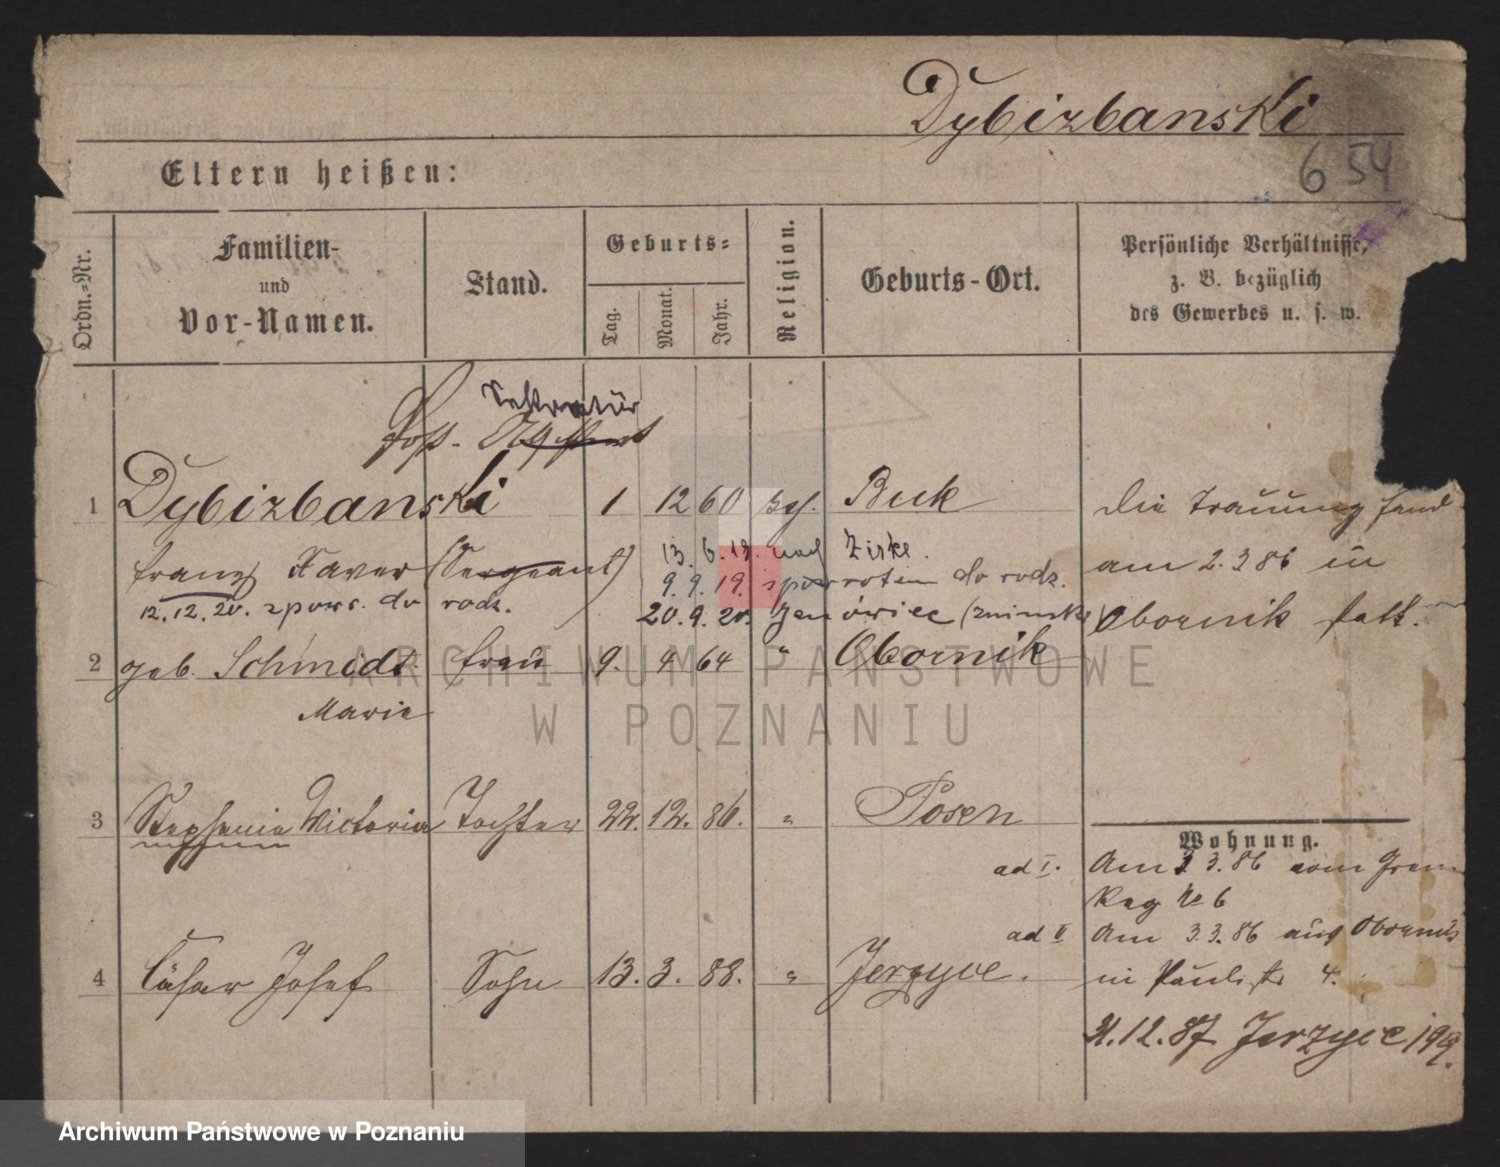 Dybizbanski
654
Eltern heißen:
Ordn.-Nr.
Familien-
und
Vor-Namen.
Stand.
Geburts-
Tag.
Monat.
Jahr.
Religion.
Geburts-Ort.
Persönliche Verhältnisse,
z. B. bezüglich
des Gewerbes u. s. w.
Sekretär
Post-
1 Dybizbanski 1 12 60 Buk
Die Trauung fand
13. 6. 19. nach Zirke.
franz Xaver (Sergeant)
am 2.3 86 in
9. 9. 19. z powrotem do rodz.
12.12.20. z powr. do rodz.
20. 9. 20. Janówiec
Obornik statt.
2 geb. Schmidt frau 9. 4 64 " Obornik
Marie
3 Stephanie Victoria Tochter 22. 12. 86. " Posen
Wohnung.
ad I. Am 3.3.86 vom Gren-
Reg No 6
ad II Am 3.3.86 aus Obornik
4 Cäsar Josef Sohn 13. 3. 88. " Jerzyce.
in Paulistr 4.
12.87 Jerzyce 199.
ARCHIWUM PAŃSTWOWE
W POZNANIU
Archiwum Państwowe w Poznaniu